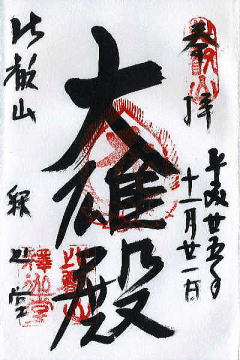 奉拝
平成廿五年
十一月廿一日
大雄殿
比叡山
釈迦堂